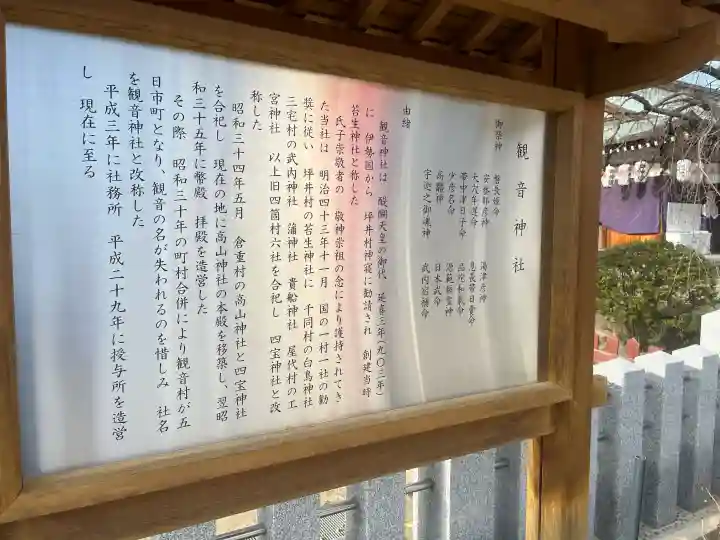 観音神社
御祭神
磐長姫命　湯津彦神
安芸都彦神　息長帯日売命
大穴牟遅命　品陀和氣命
帯中津日子命
少彦名命
高龗神　日本武命
宇迦之御魂神　武内宿禰命
由緒
観音神社は　醍醐天皇の御代　延喜三年（九〇三年）
に　伊勢国から　坪井村神寝に勧請され　創建当時
若生神社と称した
氏子崇敬者の　敬神崇祖の念により護持されてき
た当社は　明治四十三年十一月　国の一村一社の勧
奨に従い　坪井村の若生神社に　千同村の白鳥神社
三宅村の武内神社　蒲神社　貴船神社　屋代村の工
宮神社　以上旧四箇村六社を合祀し　四宝神社と改
称した
昭和三十四年五月　倉重村の高山神社と四宝神社
を合祀し　現在の地に高山神社の本殿を移築し、翌昭
和三十五年に幣殿　拝殿を造営した
その際　昭和三十年の町村合併により観音村が五
日市町となり、観音の名が失われるのを惜しみ　社名
を観音神社と改称した
平成三年に社務所　平成二十九年に授与所を造営
し　現在に至る